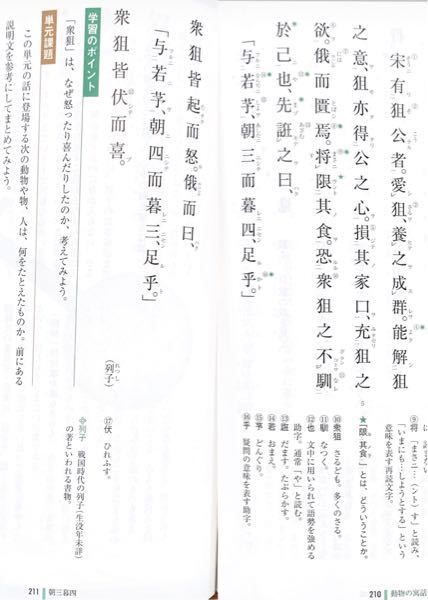 宋有狙公者。愛狙、養之成群。能解狙
之意、狙亦得公之心。損其家口、充狙之
欲。俄而匱焉。将限其食。恐衆狙之不馴
於己也、先誑之曰、
「与若芧、朝三而暮四、足乎。」
5
⑨将 「まさニ…(ント)す」と読み、
「いまにも…しようとする」という
意味を表す再読文字。
★「限其食」とは、どういうことか。
⑩衆狙 さるども。多くのさる。
⑪馴 なつく。
⑫也 文中に用いられて語勢を強める
助字。通常「や」と読む。
⑬誑 だます。たぶらかす。
⑭若 おまえ。
⑮芧 どんぐり。
⑯乎 疑問の意味を表す助字。
210 動物の寓話
衆狙皆起而怒。俄而曰、
「与若芧、朝四而暮三、足乎。」
衆狙皆伏而喜。
(列子)
⑰伏 ひれふす。
列子 戦国時代の列子(生没年未詳)
の著といわれる書物。
学習のポイント
「衆狙」は、なぜ怒ったり喜んだりしたのか、考えてみよう。
単元課題
この単元の話に登場する次の動物や物、人は、何をたとえたものか。前にある
説明文を参考にしてまとめてみよう。
211 朝三暮四